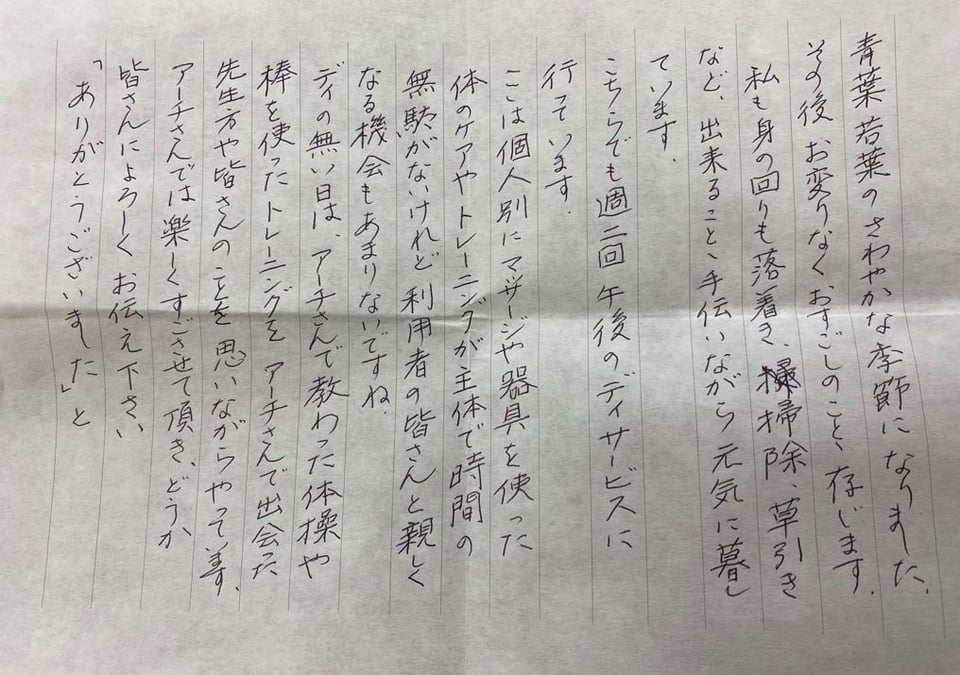 青葉若葉のさわやかな季節になりました、
その後、お変りなくおすごしのこと、存じます.
私も身の回りも落着き、掃除、草引き
など、出来ること、手伝いながら元気に暮し
ています.
こちらでも週二回午後のディサービスに
行っています.
ここは個人別にマッサージや器具を使った
体のケアやトレーニングが主体で時間の
無駄がないけれど利用者の皆さんと親しく
なる機会もあまりないですね.
ディの無い日は、アーチさんで教わった体操や
棒を使ったトレーニングを アーチさんで出会った
先生方や皆さんのことを思いながらやって居ます.
アーチさんでは楽しくすごさせて頂き、どうか
皆さんによろしくお伝え下さい
「ありがとうございました」と